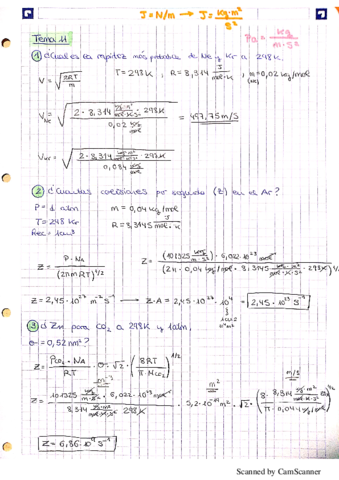 J = N/m → J = kg·m² / s²
Pa = kg / m·s²
Tema 11
① ¿Cuál es la rapidez más probable de Ne y Kr a 298K.
V = √(2RT / m)   T = 298K ; R = 8,314 J / mol·K ; m(Ne) = 0,02 kg/mol
V Ne = √(2 · 8,314 kg·m² / mol·K·s² · 298K / 0,02 kg/mol) = 497,75 m/s
V Kr = √(2 · 8,314 kg·m² / mol·K·s² · 298K / 0,084 kg/mol)
② ¿Cuántas colisiones por segundo (Z) en es Ar?
P = 1 atm   m = 0,04 kg/mol
T = 298 K   R = 8,3145 J / mol·K
Z = P·NA / (2πmRT)^1/2   Z = (101325 kg / m·s²) · 6,022·10²³ mol⁻¹ / (2π · 0,04 kg/mol · 8,3145 kg·m² / mol·K·s² · 298K)^1/2
Z = 2,45·10²⁷ m⁻² s⁻¹ → Z·A = 2,45·10²⁷ · 10⁻⁴ = 2,45·10²³ s⁻¹
③ ¿Z para CO₂ a 298K y 1 atm,
σ = 0,52 nm²?
Z = PCO₂ · NA / RT · σ · √2 · (8RT / π·MCO₂)^1/2
Z = 101325 kg / m·s² · 6,022·10²³ mol⁻¹ / 8,314 · 298K · 5,2·10⁻¹⁹ m² · √2 · (8 · 8,314 kg·m² / mol·K·s² · 298K / π · 0,044 kg/mol)^1/2
m⁻³   m²   m/s
Z = 6,86·10⁹ s⁻¹
Scanned by CamScanner